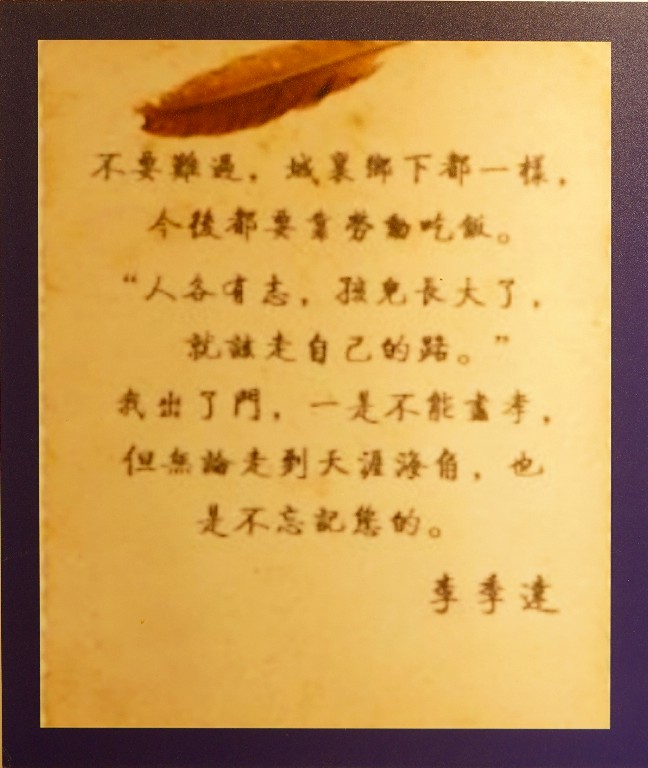 不要難過，城裏鄉下都一樣，
今後都要靠勞動吃飯。
“人各有志，孩兒長大了，
就該走自己的路。”
我出了門，一是不能盡孝，
但無論走到天涯海角，也
是不忘記您的。
李季達